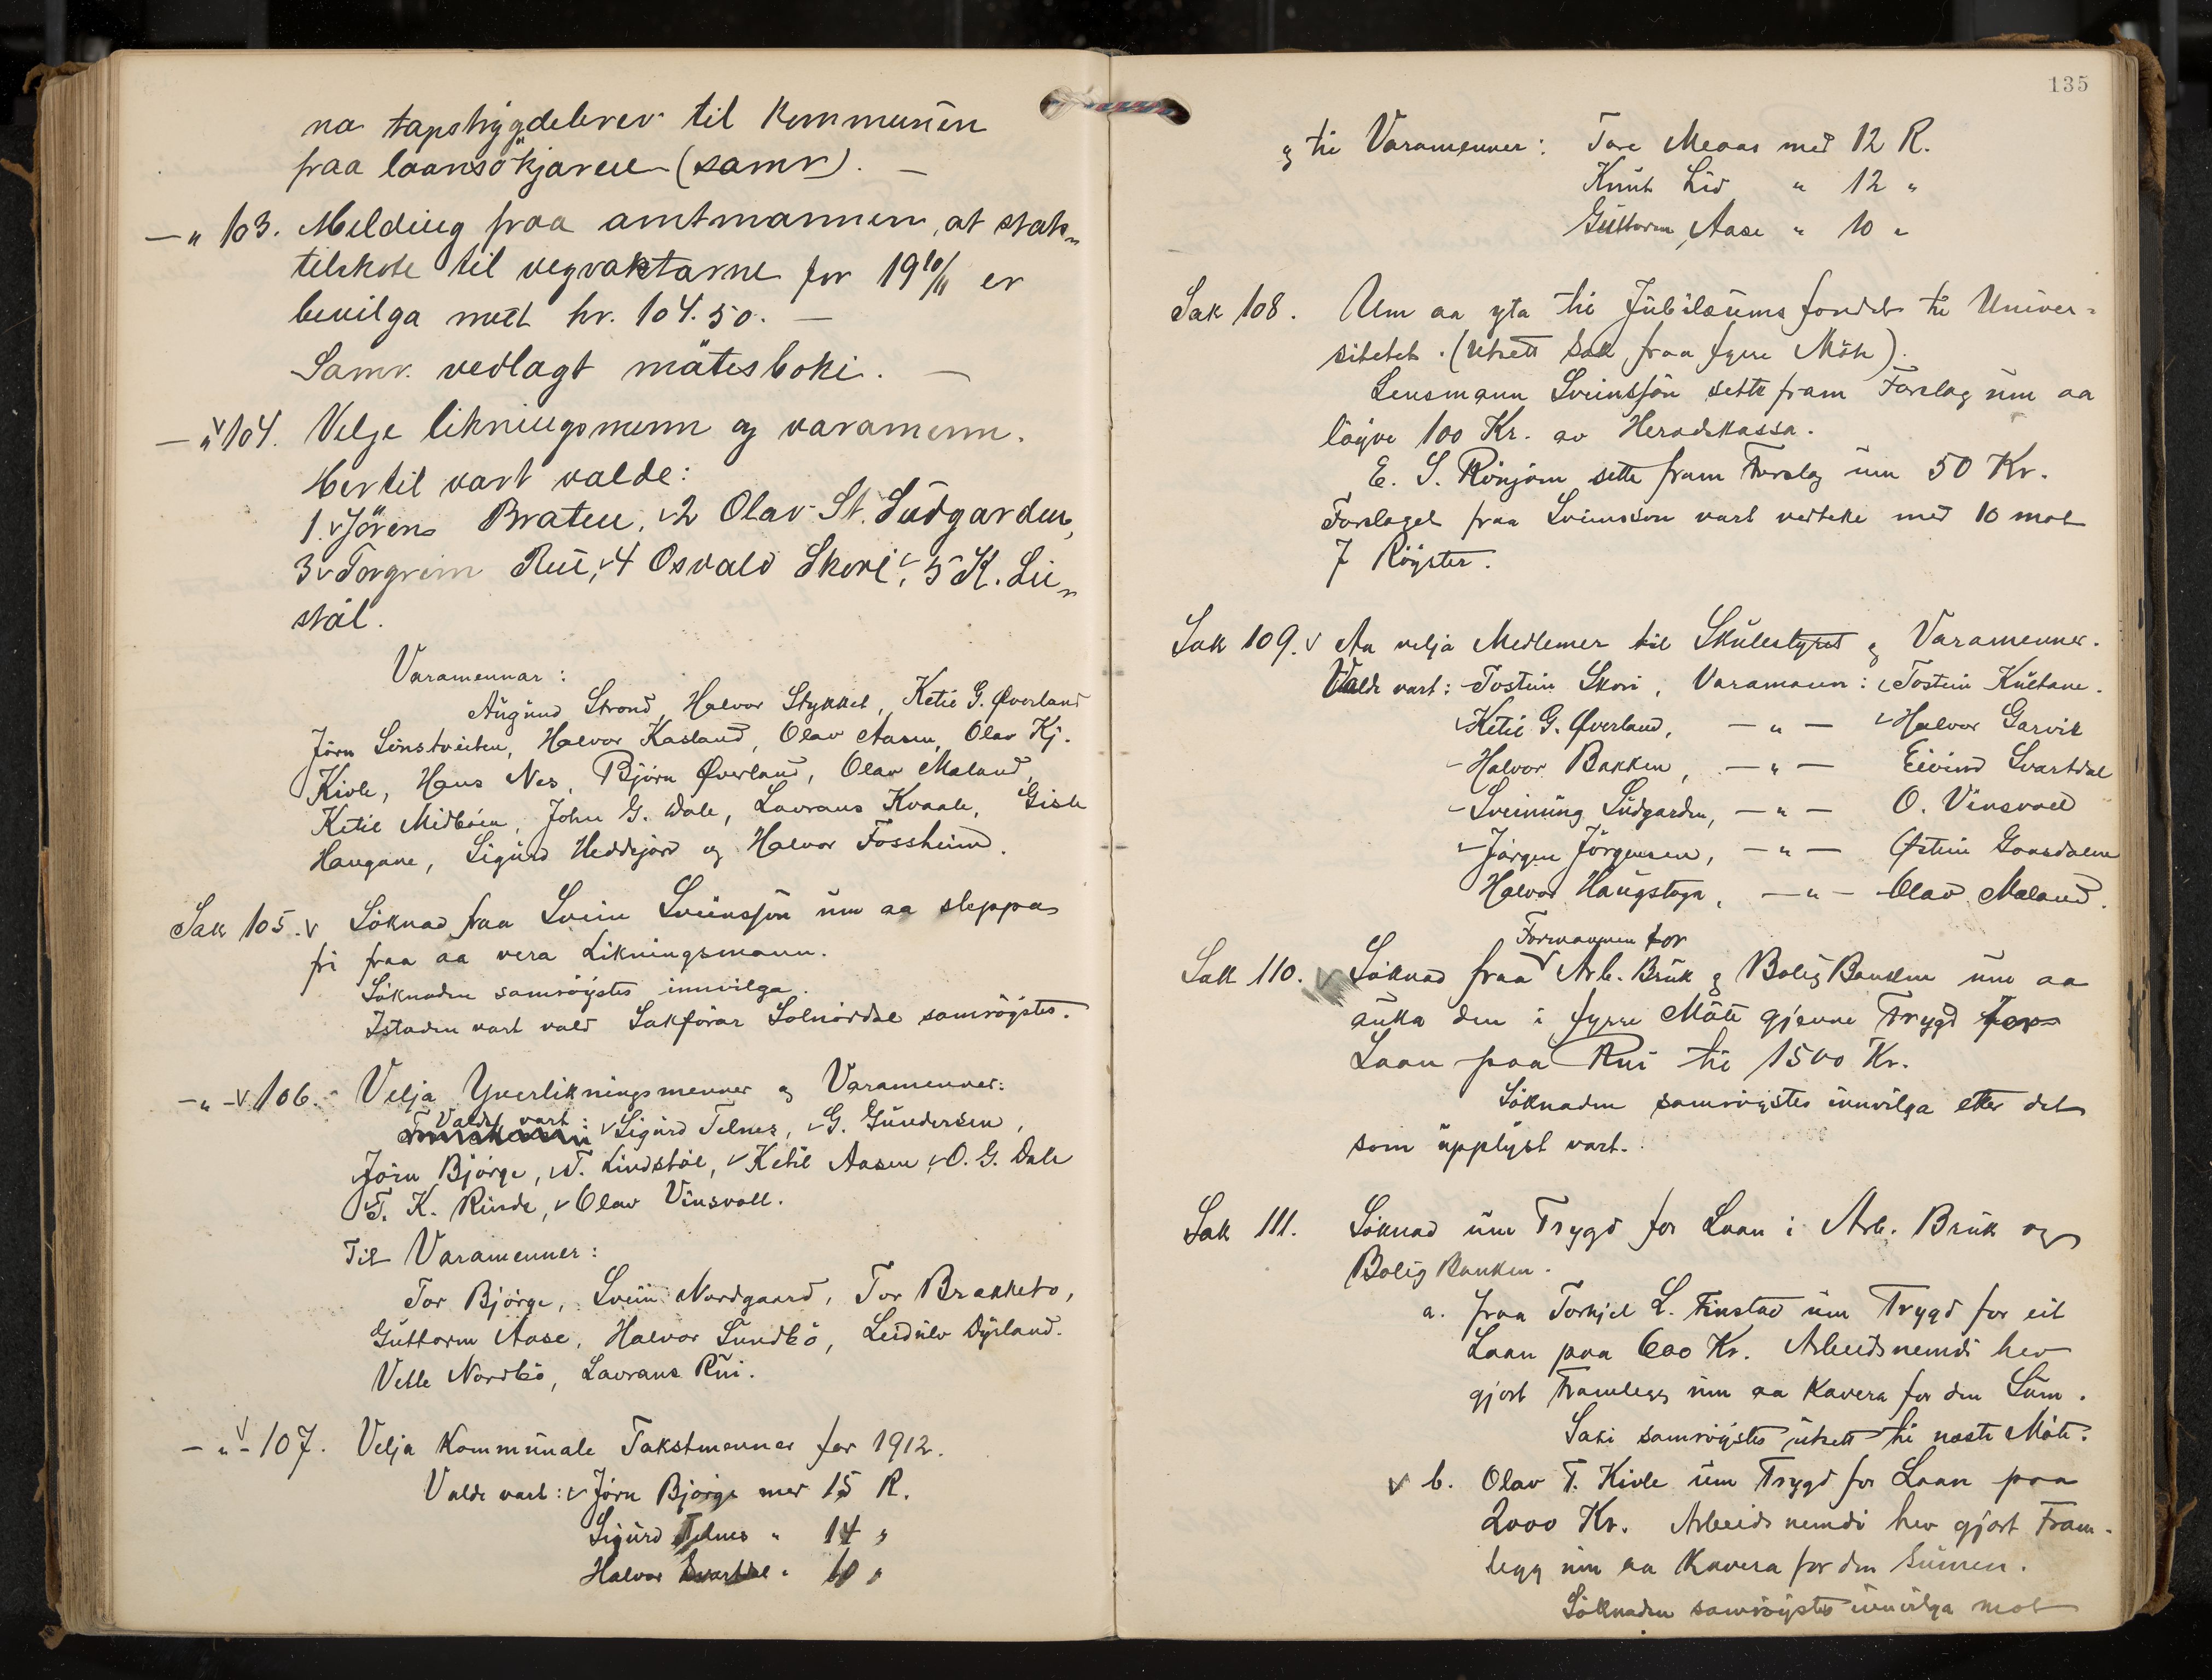 na tapstrygdebrev til Kommunen
fraa laansökjaren (samr). —
— " 103. Melding fraa amtmannen, at stats-
tilskote til vegvaktarne for 1910/11 er
bevilga med kr. 104.50. —
Samr. vedlagt mötesboki. —
— " 104. Velje likningsmenn og varamenn.
Hertil vart valde:
1. Jörens Braten, 2 Olav St. Sudgarden,
3 Torgrim Rui, 4 Osvald Skori, 5 K. Lii-
stöl.
Varamennar:
Augund Strond, Halvor Stykket, Ketil G. Øverland
Jörn Sönstveiten, Halvor Kasland, Olav Aasen, Olav Kj.
Kivle, Hans Nes, Björn Øverland, Olav Maland,
Ketil Midböen, John G. Dale, Lavrans Kvaale, Gisle
Haugane, Sigurd Heddejord og Halvor Fossheim.
Sak 105. Söknad fraa Svein Sveinsson um aa sleppa
fri fraa aa vera Likningsmann.
Söknaden samröystes innvilga.
Istaden vart vald Sakförar Solnördal samröystes.
— " — 106. Velja Yverlikningsmenner og Varamenner:
Valde vart: Sigurd Telnes, G. Gundersen,
Jörn Björge, T. Lindstöl, Ketil Aasen, O. G. Dale
T. K. Rinde, Olav Vinsvoll.
Til Varamenner:
Tor Björge, Svein Nordgaard, Tor Brekketo,
Guttorm Aase, Halvor Sundbö, Leidulv Dyrland.
Vetle Nordbö, Lavrans Rui.
— " — 107. Velja Kommunale Takstmenner for 1912.
Valde vart: Jörn Björge med 15 R.
Sigurd Telnes " 14 "
Halvor Svartdal " 10 "
135
og til Varamenner: Tore Meaas med 12 R.
Knut Lid " 12 "
Guttorm Aase " 10 "
Sak 108. Um aa yta til Jubilæums fondet til Univer-
sitetet. (Utsett Sak fraa fyrre Möte).
Lensmann Sveinsson sette fram Forslag um aa
löyve 100 Kr. av Heradskassa.
E. S. Rönjom sette fram Forslag um 50 Kr.
Forslaget fraa Sveinsson vart vedteke med 10 mot
7 Röyster.
Sak 109. Aa velja Medlemer til Skulestyret og Varamenner.
Valde vart: Tostein Skori, Varamann: Tostein Kultane.
Ketil G. Øverland, — " — Halvor Garvik
Halvor Bakken, — " — Eivind Svartdal
Sveinung Sudgarden, — " — O. Vinsvoll
Jörgen Jörgensen, — " — Østein Gaasdalen
Halvor Haugstoga, — " — Olav Maland.
Formannen for
Sak 110. Söknad fraa Arb. Bruk og Bolig Banken um aa
auka den i fyrre Möte gjevne Trygd for
Laan paa Rui til 1500 Kr.
Söknaden samröystes innvilga etter det
som upplyst vart.
Sak 111. Söknad um Trygd for Laan i Arb. Bruk og
Bolig Banken.
a. fraa Torkjel L. Finstad um Trygd for eit
Laan paa 600 Kr. Arbeidsnemdi hev
gjort Framlegg um aa Kavera for den Sum.
Saki samröystes utsett til næste Möte.
b. Olav T. Kivle um Trygd for Laan paa
2000 Kr. Arbeidsnemdi hev gjort Fram-
legg um aa Kavera for den Summen.
Söknaden samröystes innvilga mot